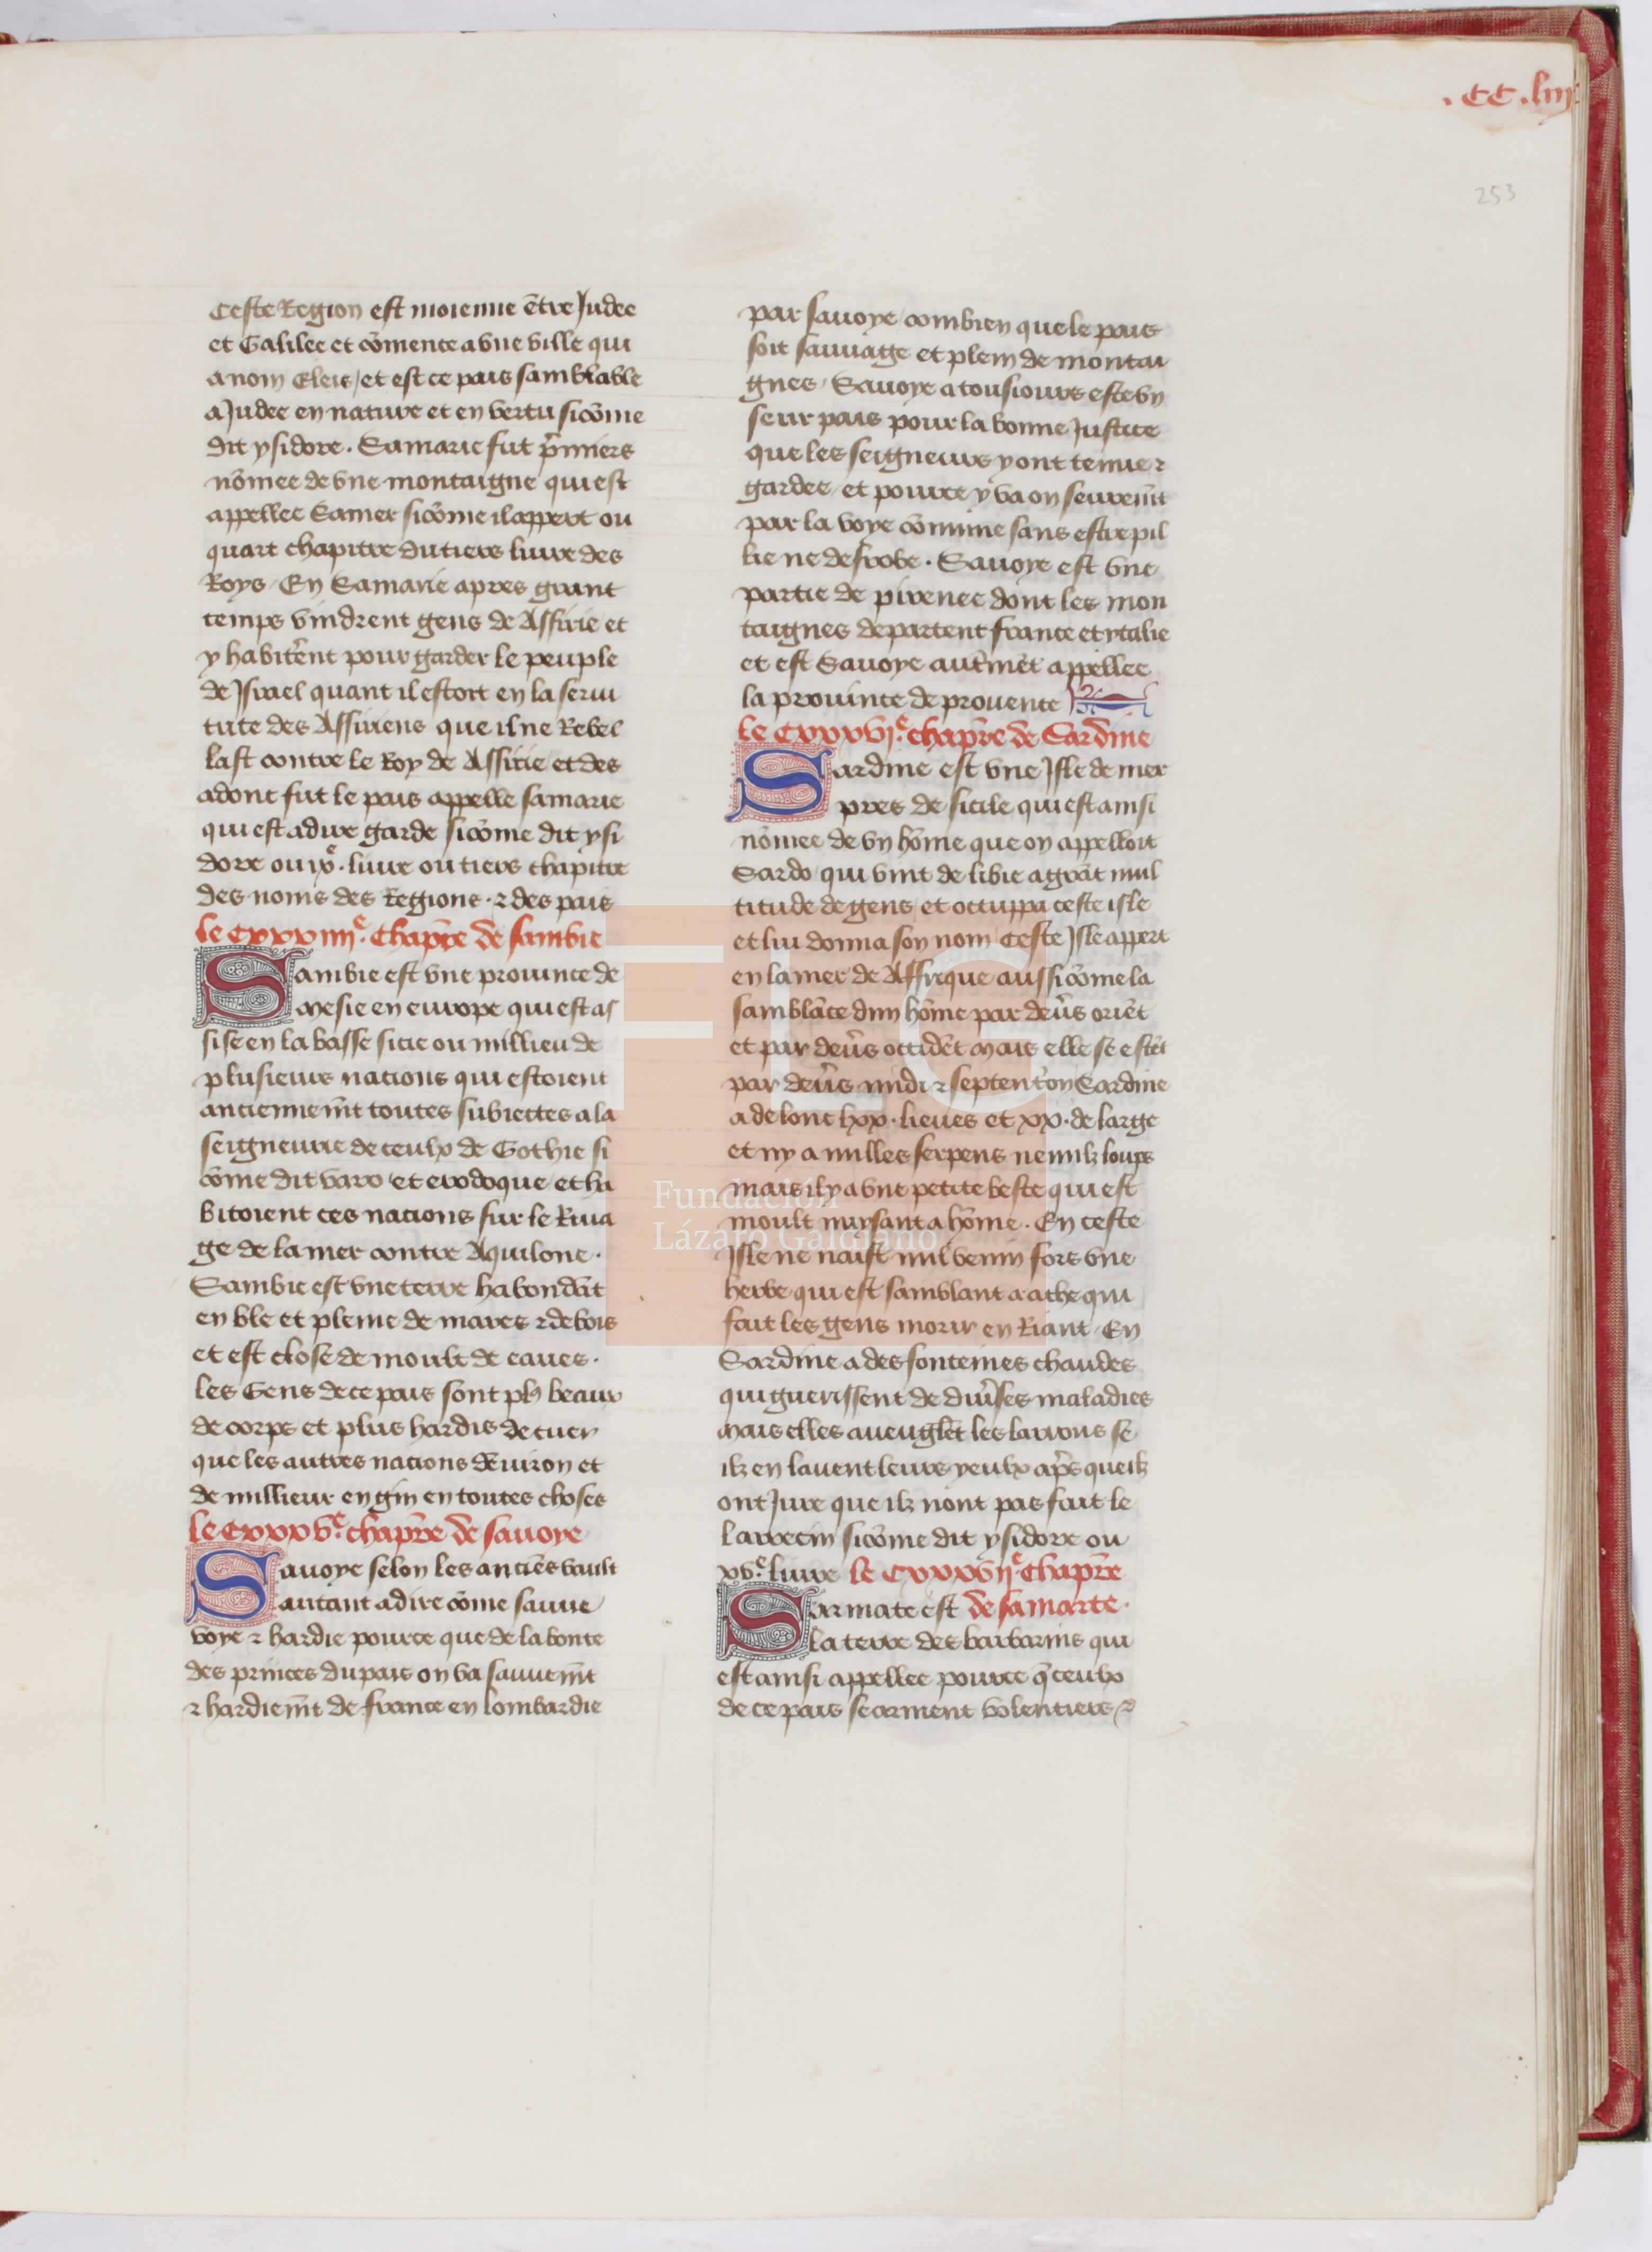 .CC.liii
253
Ceste Region est moienne ētre Judee
et Galilee et cōmence a vne ville qui
a nom Eleis / et est ce pais samblable
a Judee en nature et en vertu sicōme
dit ysidore. Samarie fut p̄miers
nōmee de vne montaigne qui est
appellee Samer sicōme il appert ou
quart chapitre du tiers liure des
Roys / En Samarie apres grant
temps vindrent gens de Assirie et
y habiter̄ent pour garder le peuple
de Jsrael quant il estoit en la serui
tute des Assiriens que il ne Rebel
last contre le Roy de Assirie et des
adont fut le pais appelle samarie
qui est a dire garde sicōme dit ysi
dore ou ixᵉ. liure ou tiers chapitre
des noms des Regions. ⁊ des pais
le Cxxxiiiiᵉ. chap̄re de sambie
Sambie est vne prouince de
Mesie en europe qui est as
sise en la basse sicie ou millieu de
plusieurs nacions qui estoient
anciennem̄t toutes subiectes a la
seigneurie de ceulx de Gothie si
cōme dit varo et erodoque et ha
bitoient ces nacions sur le Riua
ge de la mer contre Aquilone.
Sambie est vne terre habondāt
en ble et pleine de mares ⁊ de bois
et est close de moult de eaues.
les Gens de ce pais sont plꝰ beaux
de corps et plus hardis de cuer
que les autres nacions dēuiron et
de millieur engin en toutes choses
le Cxxxvᵉ. chap̄re de sauoye
Sauoye selon les anciēs vault
autant a dire cōme sauue
voye ⁊ hardie pource que de la bonte
des princes du pais on va sauuem̄t
⁊ hardiem̄t de france en lombardie
par sauoye combien que le pais
soit sauuage et plein de montai
gnes / Sauoye a tousiours este vn
seur pais pour la bonne Justice
que les seigneurs y ont tenue ⁊
gardee / et pource y va on seurem̄t
par la voye cōmune sans estre pil
lie ne desrobe. Sauoye est vne
partie de pirenee dont les mon
taignes departent france et ytalie
et est Sauoye autrem̄et appellee
la prouince de prouence
le Cxxxviᵉ. chap̄re de Sardine
Sardine est vne Jsle de mer
pres de sicile qui est ainsi
nōmee de vn hōme que on appelloit
Sardo qui vint de libie a grāt mul
titude de gens / et occuppa ceste isle
et lui donna son nom Ceste Jsle appert
en la mer de Affrique aussi cōme la
samblāce dun hōme par deu̅s oriēt
et par deu̅s occidēt Mais elle se estēt
par deu̅s midi ⁊ septentr̄on Sardine
a de lonc lxx. lieues et xx. de large
et ny a nulles serpens ne nulz loups
mais il y a vne petite beste qui est
moult nuysant a hōme. En ceste
Jsle ne naist nul venin fors vne
herbe qui est samblant a ache qui
fait les gens morir en Riant / En
Sardine a des fonteines chaudes
qui guerissent de diu̅ses maladies
Mais elles aueuglēt les larrons se
ilz en lauent leurs yeulx ap̄s que ilz
ont Jure que ilz nont pas fait le
larrecin sicōme dit ysidore ou
xvᵉ. liure le Cxxxviiᵉ. chap̄re
Sarmate est de samarte.
la terre des barbarins qui
est ainsi appellee pource q̄ ceulx
de ce pais se arment volentiers ⁊
Fundación
Lázaro Galdiano